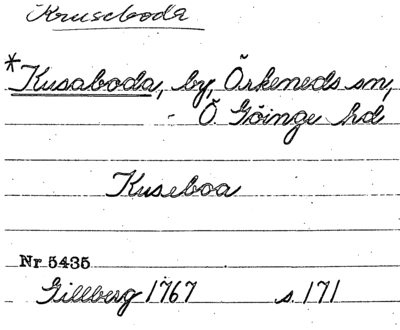 Kruseboda
*Kusaboda, by, Örkeneds sn,
Ö. Göinge hd
Kuseboa
Nr 5435
Gillberg 1767 s. 171